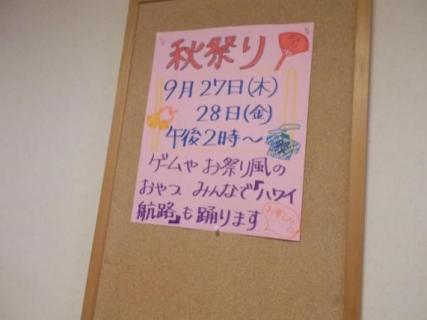 秋祭り
9月27日(木)
28日(金)
午後2時～
ゲームや お祭り風の
おやつ みんなで「ハワイ
航路」も踊ります